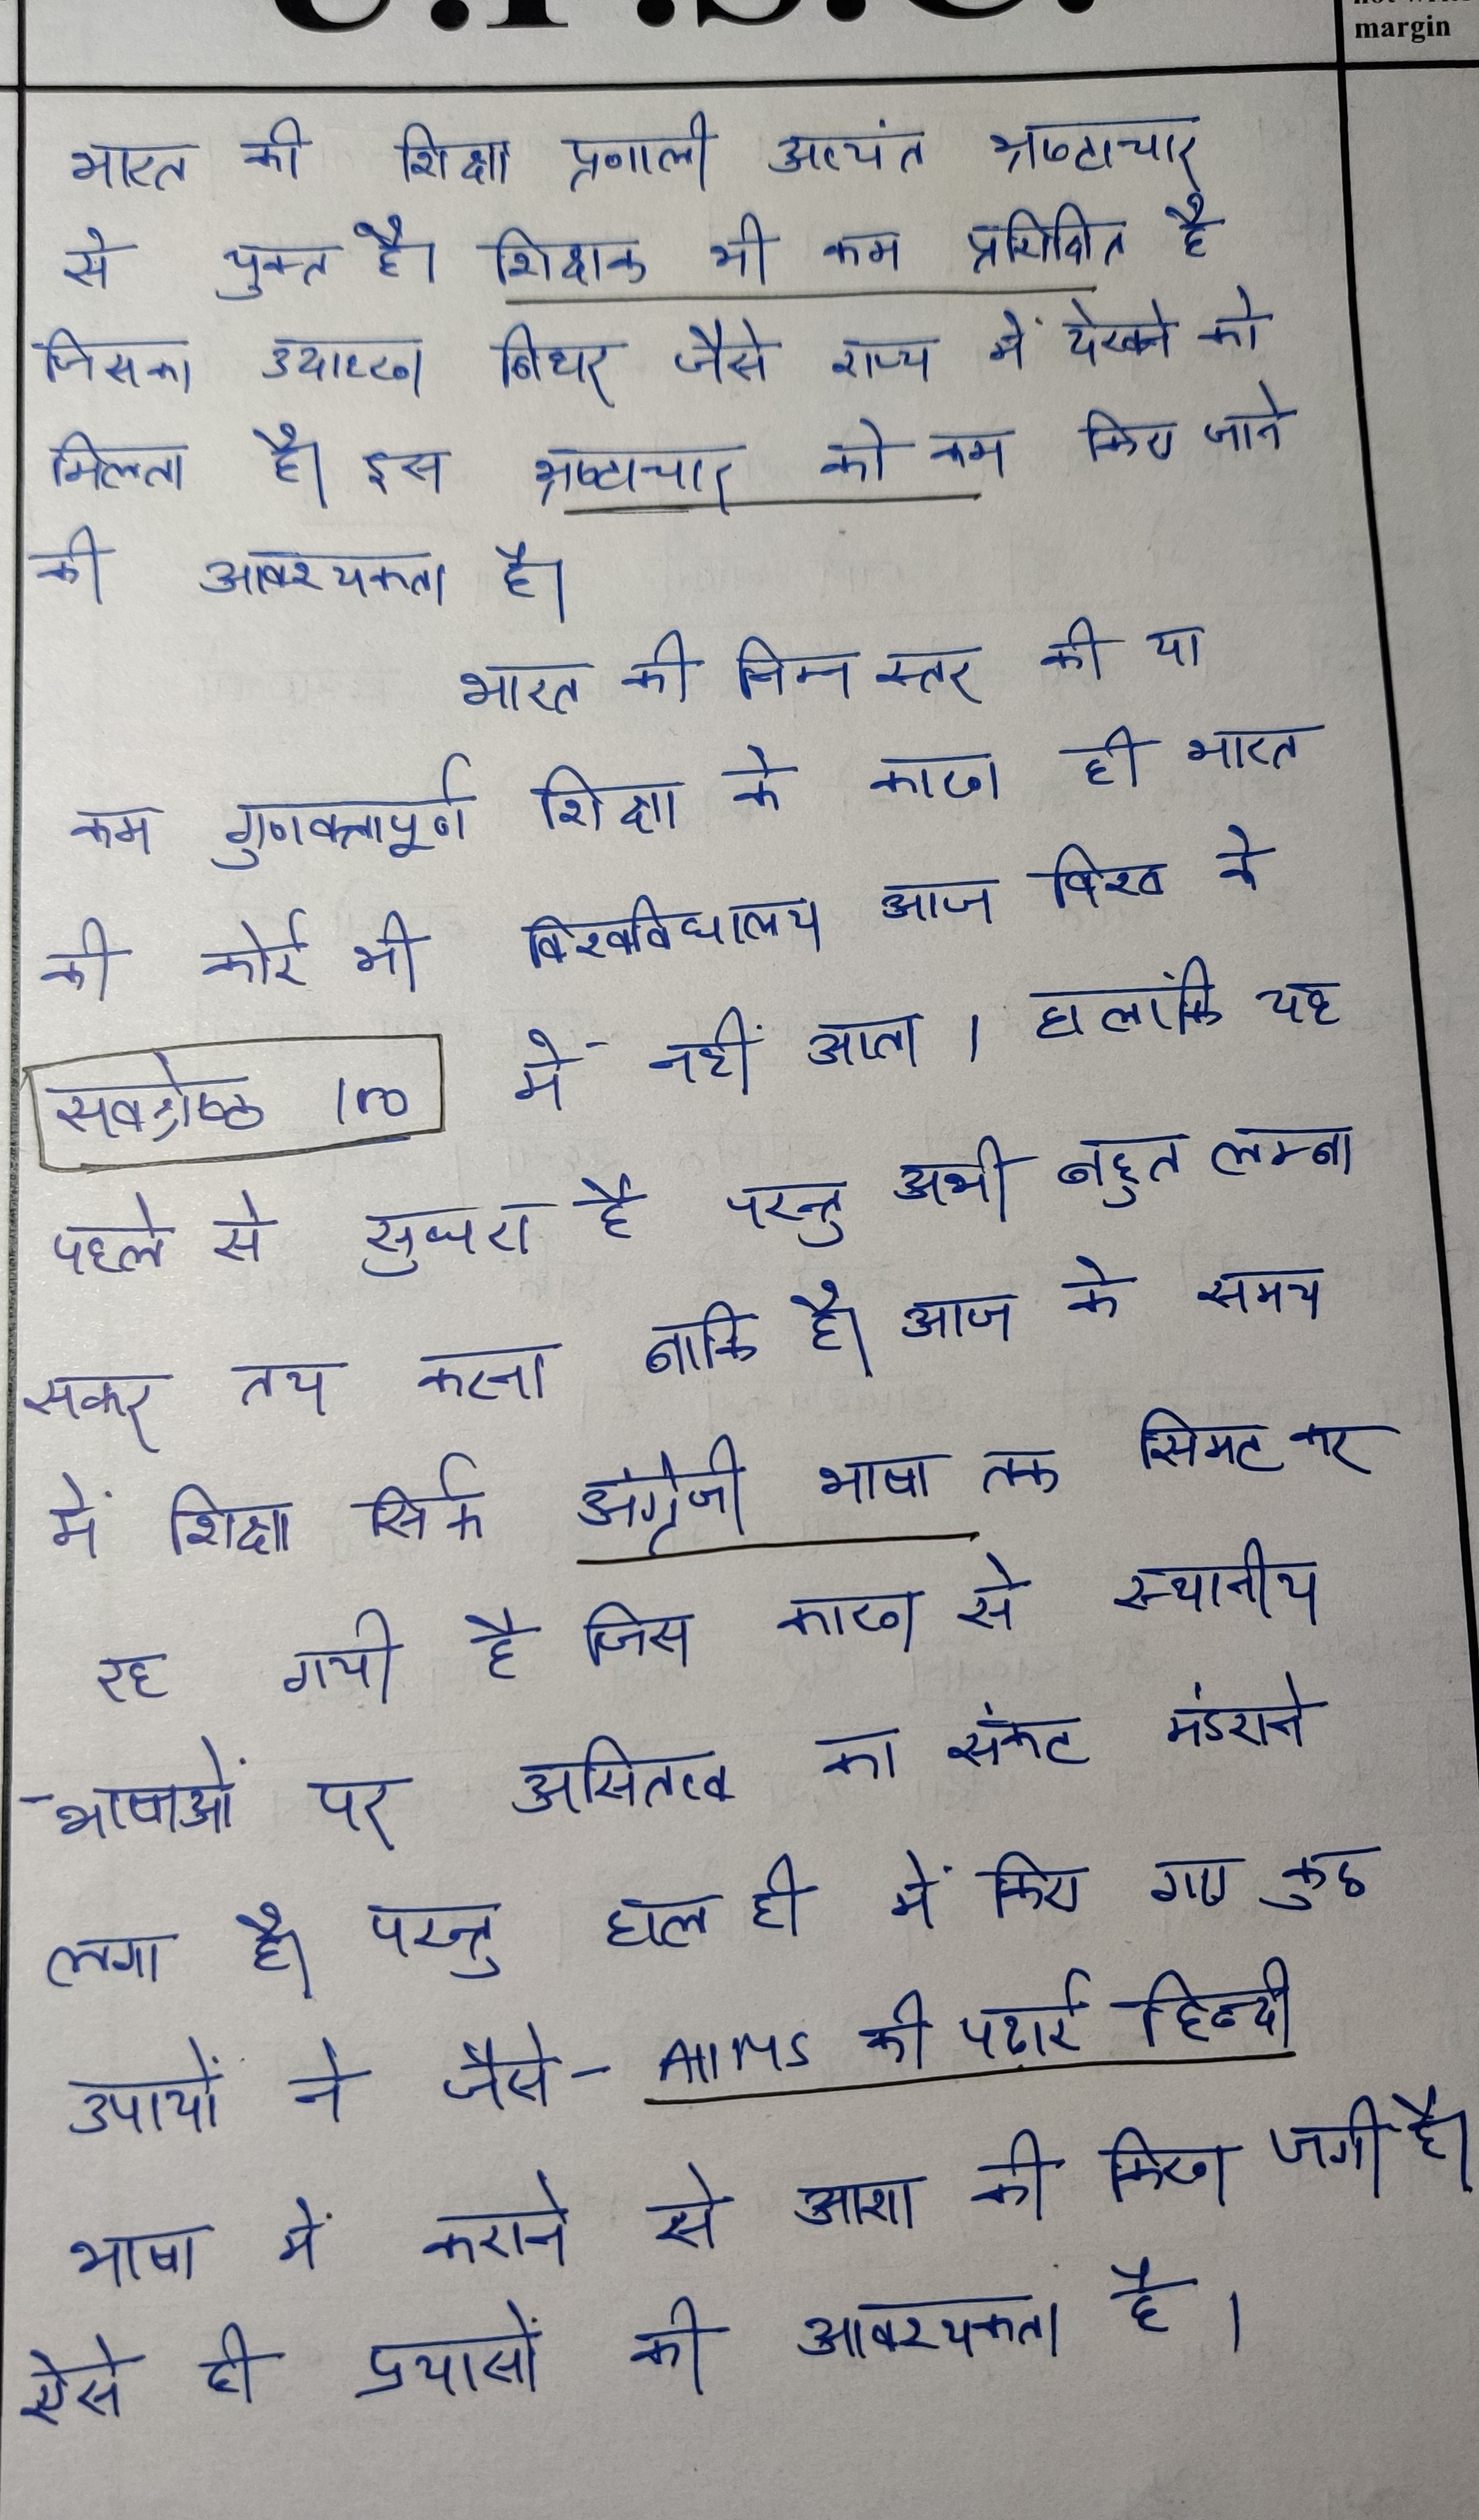 U.P.S.C.
margin
भारत की शिक्षा प्रणाली अत्यंत भ्रष्टाचार
से युक्त है। शिक्षक भी कम प्रशिक्षित है
जिसका उदाहरण बिहार जैसे राज्य में देखने को
मिलता है। इस भ्रष्टाचार को कम किए जाने
की आवश्यकता है।
भारत की निम्न स्तर की या
कम गुणवत्तापूर्ण शिक्षा के कारण ही भारत
की कोई भी विश्वविद्यालय आज विश्व के
सवश्रेष्ठ 100 में नहीं आता । हालांकि यह
पहले से सुधरा है परन्तु अभी बहुत लम्बा
सफर तय करना बाकि है। आज के समय
में शिक्षा सिर्फ अंग्रेजी भाषा तक सिमट कर
रह गयी है जिस कारण से स्थानीय
भाषाओं पर असितत्व का संकट मंडराने
लगा है। परन्तु हाल ही में किए गए कुछ
उपायों ने जैसे- AIIMS की पढाई हिन्दी
भाषा में कराने से आशा की किरण जगी है।
ऐसे ही प्रयासों की आवश्यकता है ।